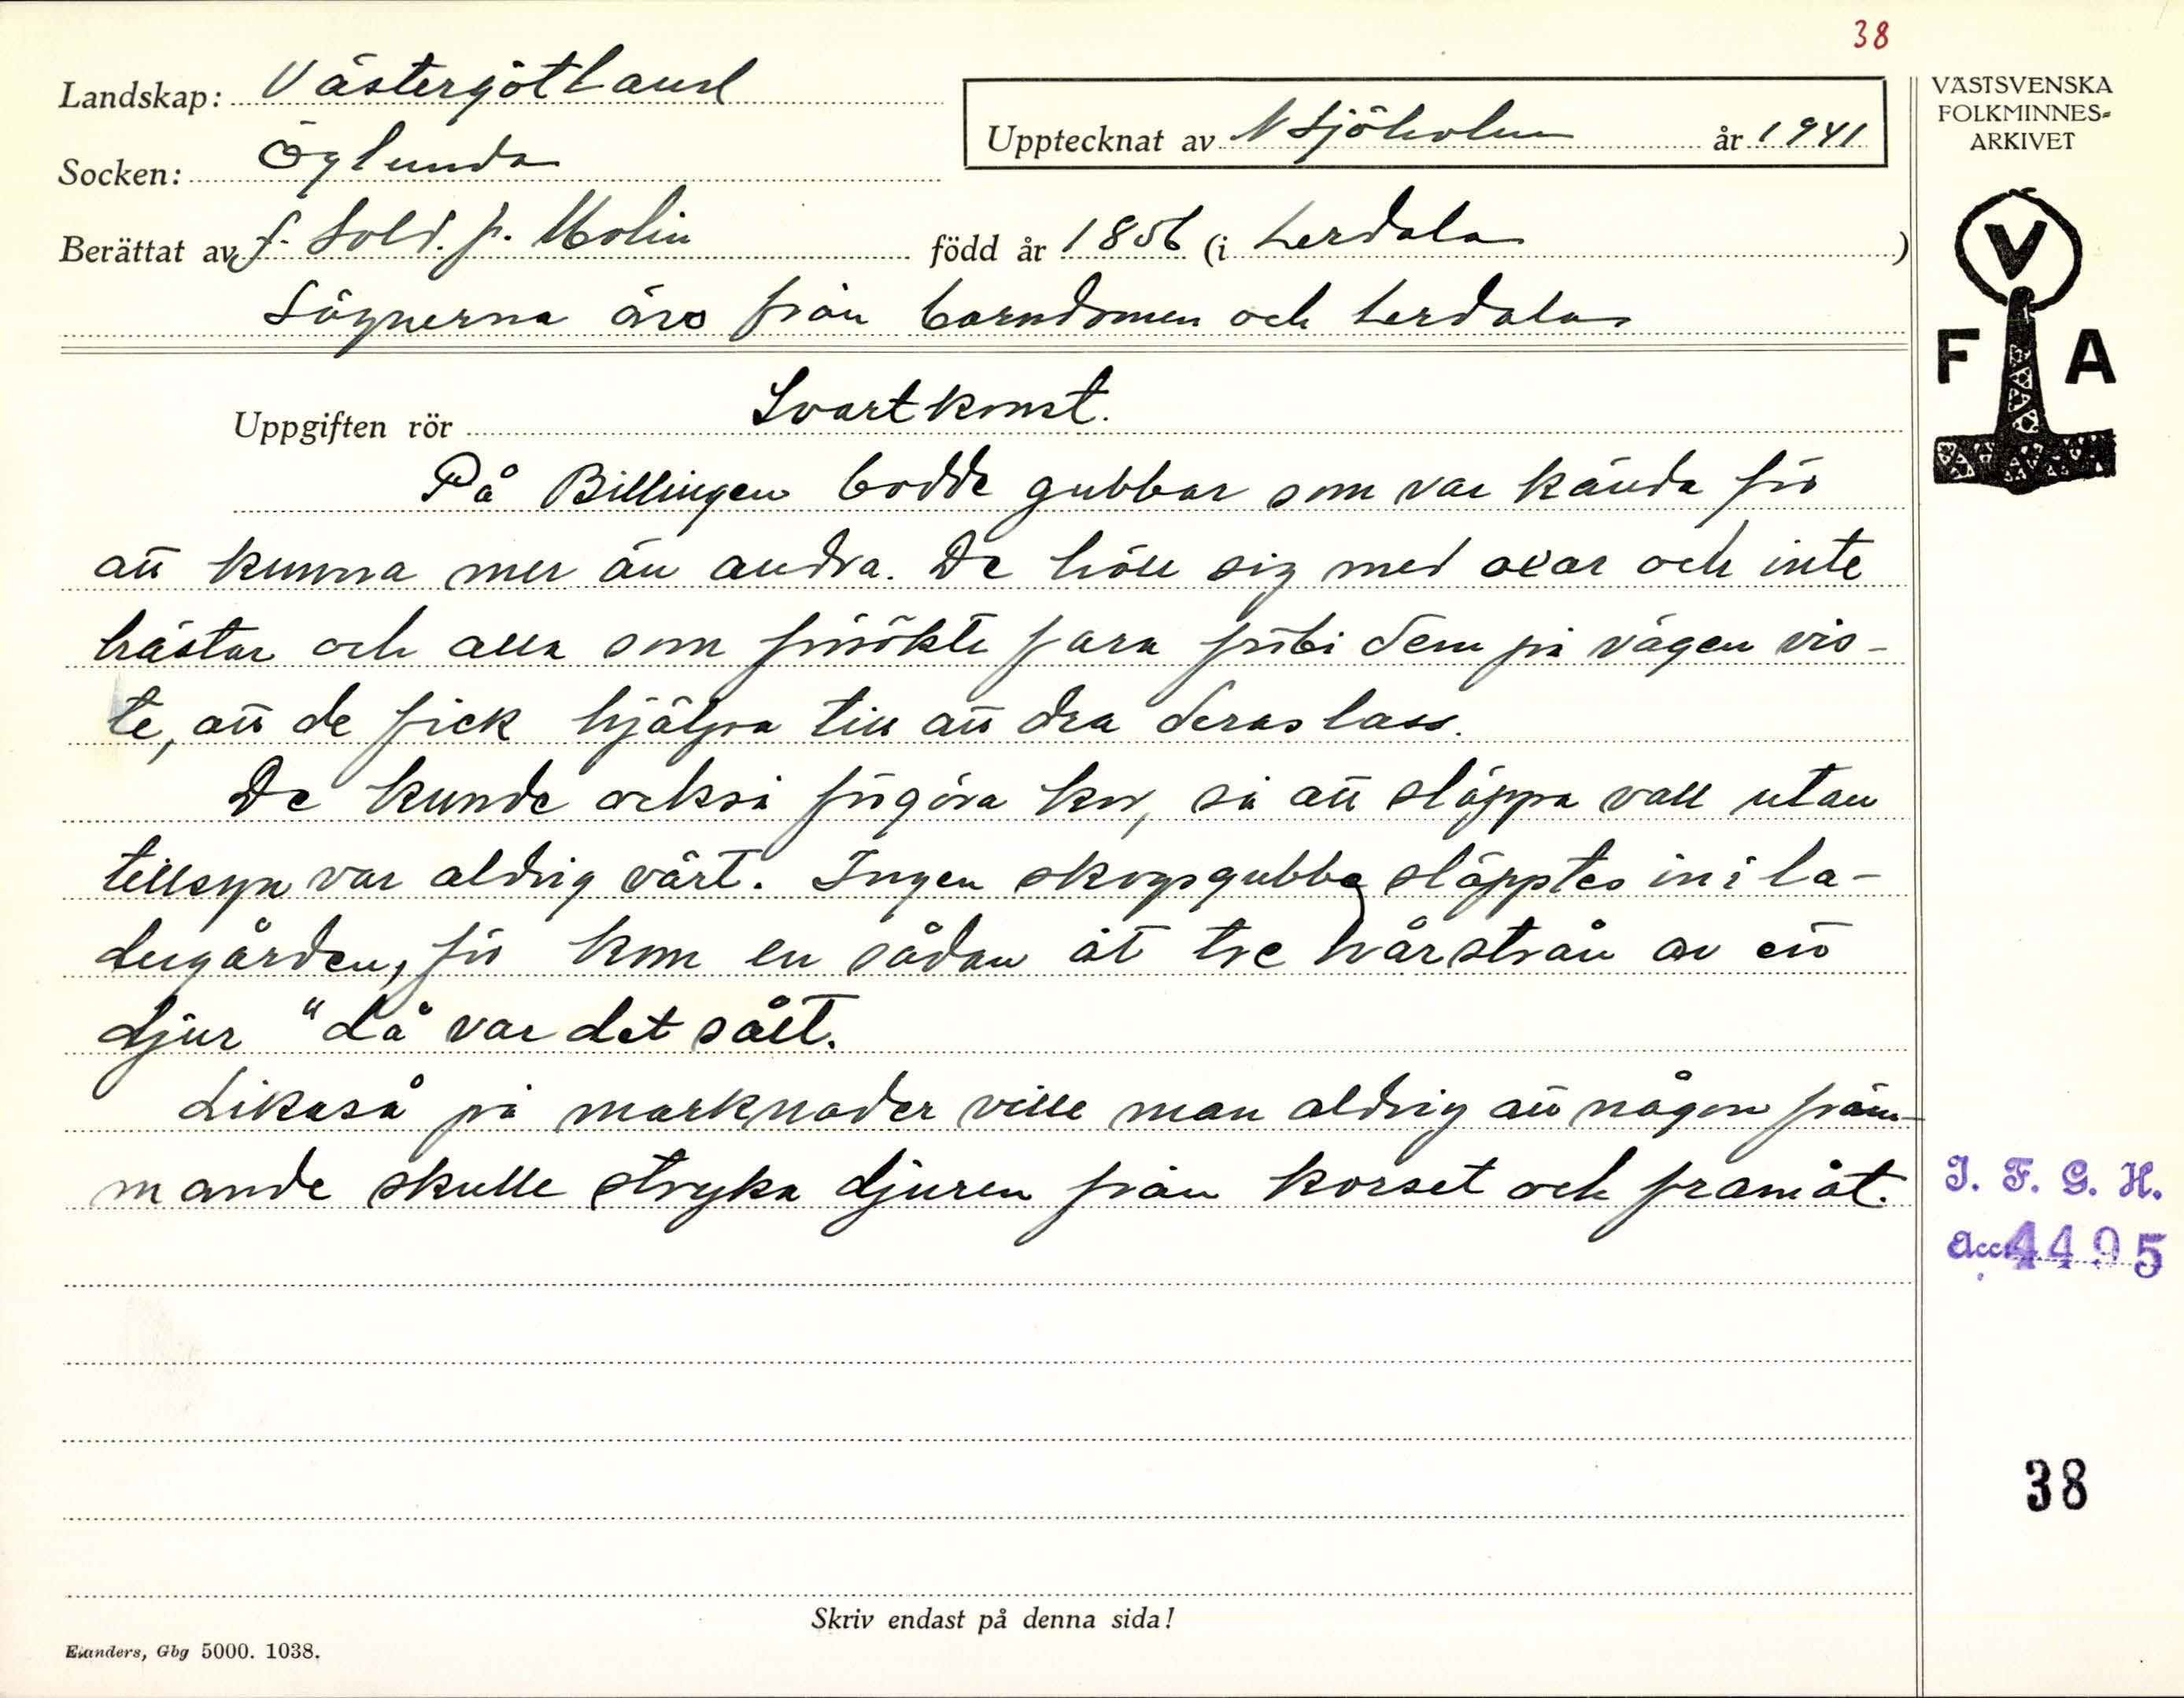 38
Landskap: Västergötland
Socken: Öglunda
Upptecknat av N Sjöholm år 1941
VÄSTSVENSKA
FOLKMINNES-
ARKIVET
Berättat av f. Sold. J. Molin född år 1856 (i Lerdala)
Sägnerna äro från barndomen och Lerdala
V
F A
Uppgiften rör Svartkonst.
På Billingen bodde gubbar som var kända för
att kunna mer än andra. De höll sig med oxar och inte
hästar och alla som försökte fara förbi dem på vägen vis-
te, att de fick hjälpa till att dra deras lass.
De kunde också förgöra kor, så att släppa vall utan
tillsyn var aldrig värt. Ingen skogsgubbe släpptes in i la-
dugården, för kom en sådan åt tre hårstrån av ett
djur "då var det sått.
Likaså på marknader ville man aldrig att någon främ-
mande skulle stryka djuren från korset och framåt.
I. F. G. H.
Acc. 4495
38
Skriv endast på denna sida!
Elanders, Gbg 5000. 1038.